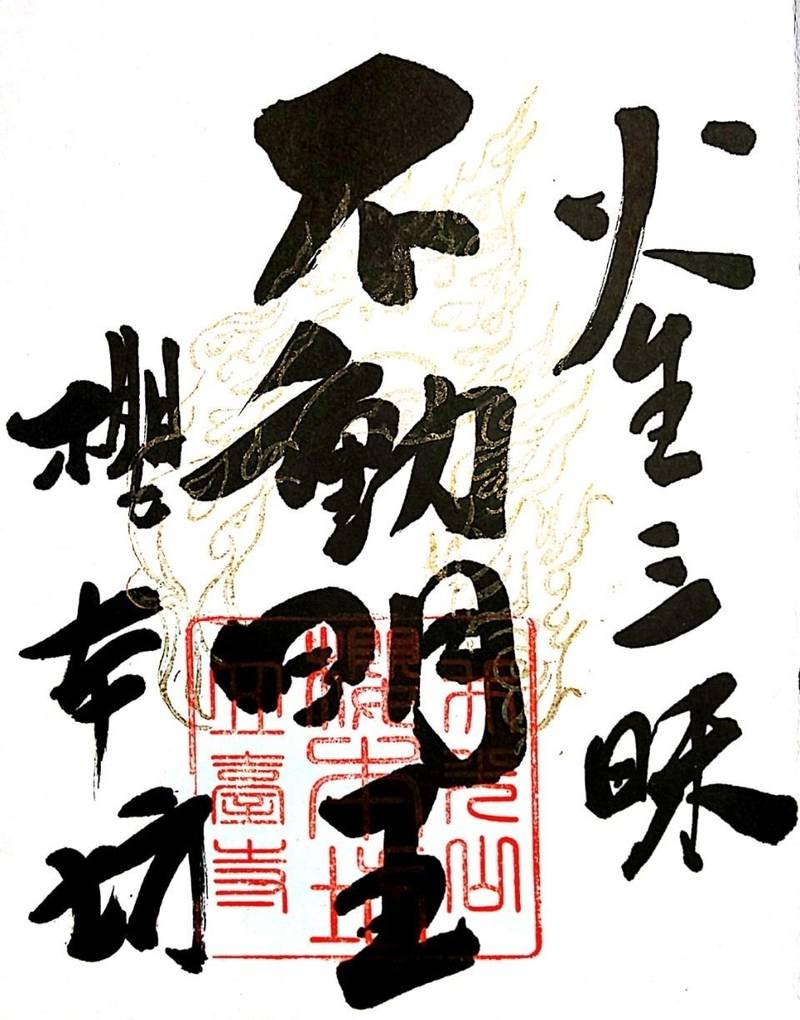 火生三昧
不動明王
櫻本坊
井光山
櫻本坊
五臺寺